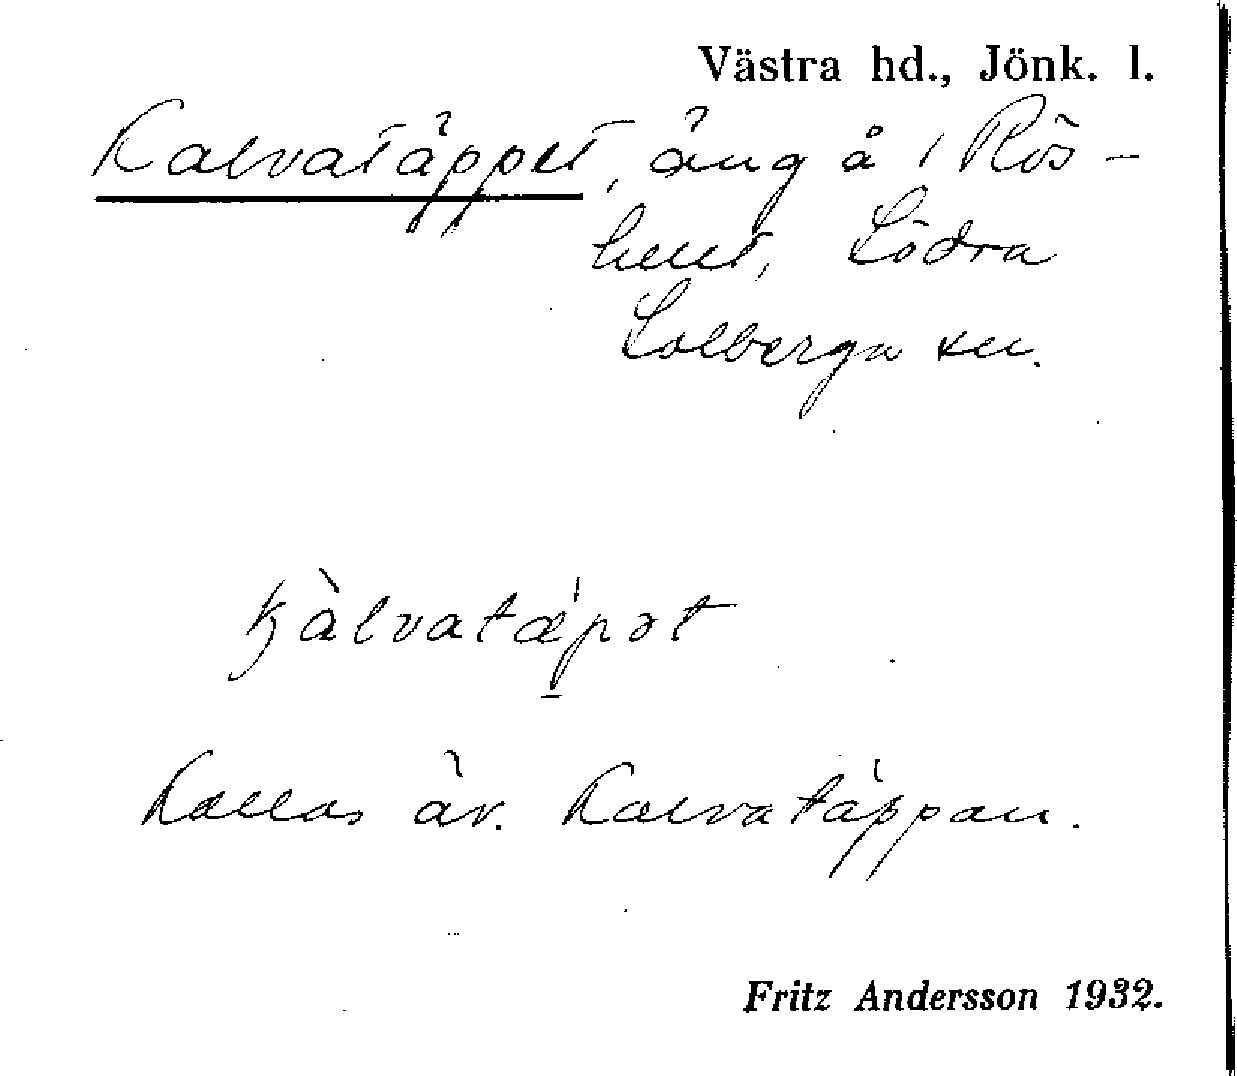 Västra hd., Jönk. l.
Kalvatäppet, äng å 1 Rös-
hult, Södra
Solberga sn.
kàlvatæ̀pət
Kallas äv. Kalvatäppan.
Fritz Andersson 1932.